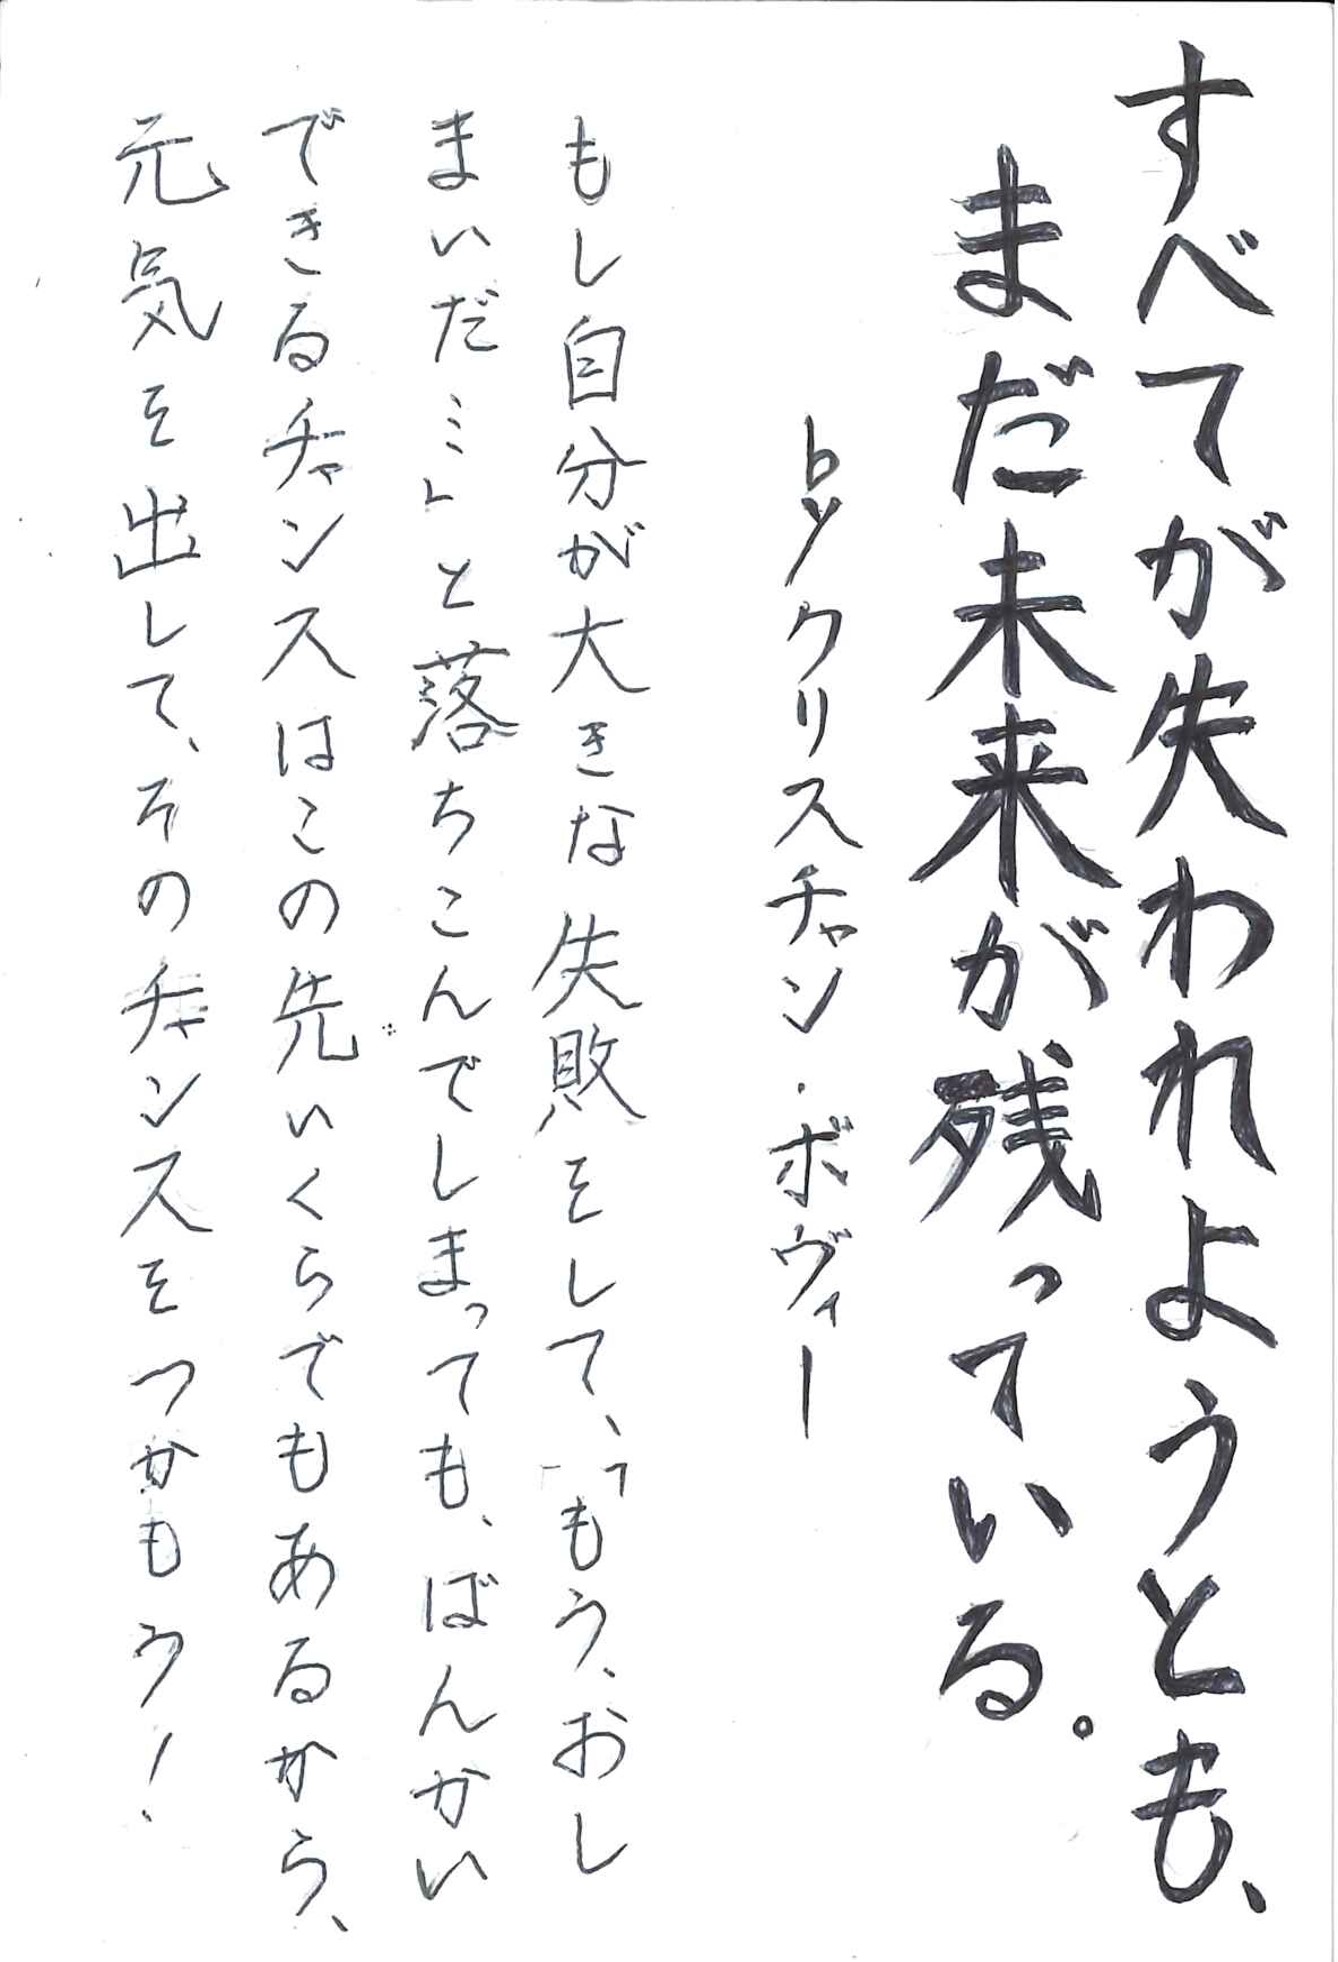 すべてが失われようとも、
まだ未来が残っている。
byクリスチャン・ボヴィー
もし自分が大きな失敗をして、「もう、おし
まいだ…」と落ちこんでしまっても、ばんかい
できるチャンスはこの先いくらでもあるから、
元気を出して、そのチャンスをつかもう!